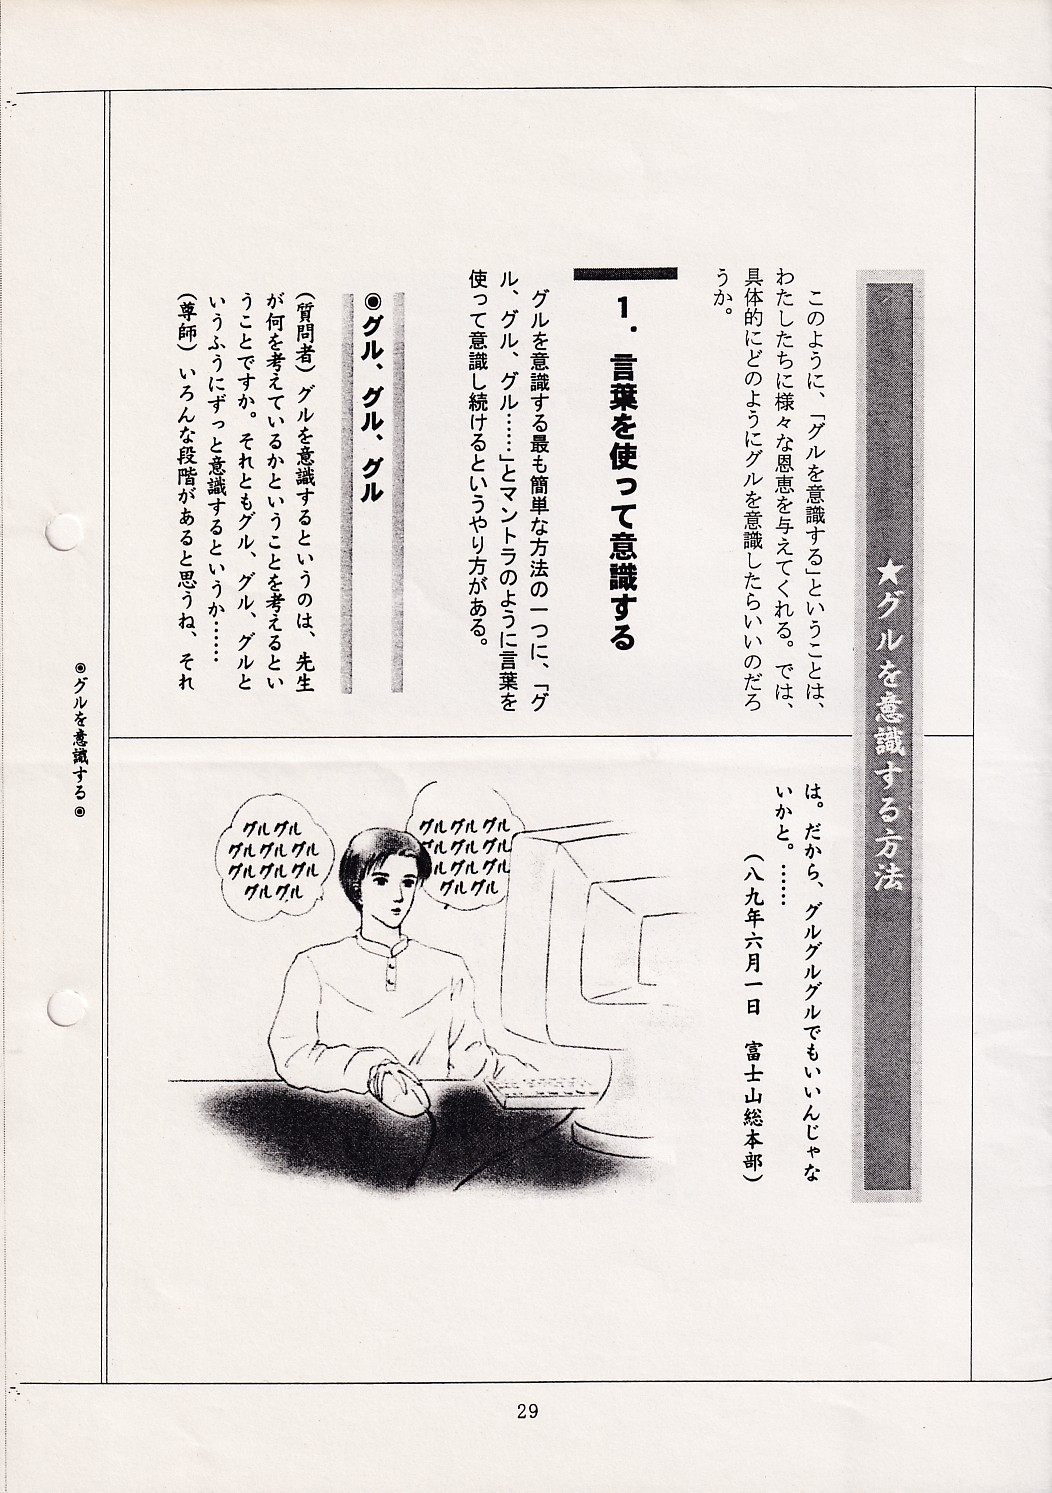 ★グルを意識する方法
このように、「グルを意識する」ということは、
わたしたちに様々な恩恵を与えてくれる。では、
具体的にどのようにグルを意識したらいいのだろ
うか。
1．言葉を使って意識する
グルを意識する最も簡単な方法の一つに、「グ
ル、グル、グル……」とマントラのように言葉を
使って意識し続けるというやり方がある。
◉グル、グル、グル
（質問者）グルを意識するというのは、先生
が何を考えているかということを考えるとい
うことですか。それともグル、グル、グルと
いうふうにずっと意識するというか……
（尊師）いろんな段階があると思うね、それ
は。だから、グルグルグルでもいいんじゃな
いかと。……
（八九年六月一日　富士山総本部）
グルグルグル
グルグルグル
グルグルグル
グルグル
グルグル
グルグルグル
グルグルグル
グルグル
◉グルを意識する◉
29